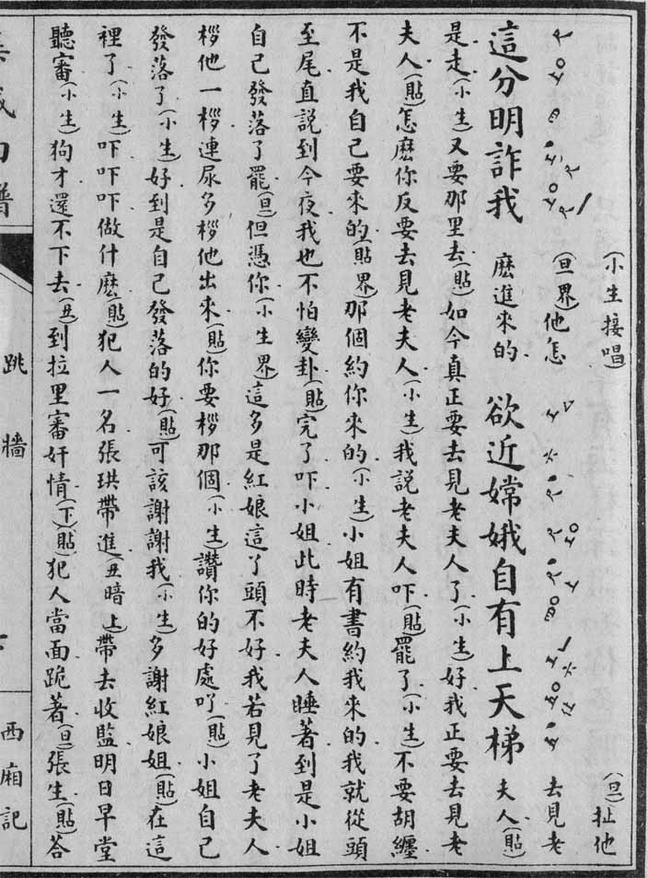 (小生接唱) (旦)扯他
(旦界)他怎 去見老
這分明詐我 麽進來的 欲近嫦娥自有上天梯 夫人(貼)
是走(小生)又要那里去(貼)如今真正要去見老夫人了(小生)好我正要去見老
夫人(貼)怎麽你反要去見老夫人(小生)我説老夫人吓(貼)罷了(小生)不要胡纏
不是我自己要來的(貼界)那個約你來的(小生)小姐有書約我來的我就從頭
至尾直説到今夜我也不怕變卦(貼)完了吓小姐此時老夫人睡著到是小姐
自己發落了罷(旦)但憑你(小生界)這多是紅娘這了頭不好我若見了老夫人
桚他一桚連尿多桚他出來(貼)你要桚那個(小生)讚你的好處吖(貼)小姐自己
發落了(小生)好到是自己發落的好(貼)可該謝謝我(小生)多謝紅娘姐(貼)在這
裡了(小生)吓吓吓做什麽(貼)犯人一名張珙帶進(丑暗上)帶去收監明日早堂
聽審(小生)狗才還不下去(丑)到拉里審奸情(下)(貼)犯人當面跪著(旦)張生(貼)荅
跳牆
西廂記